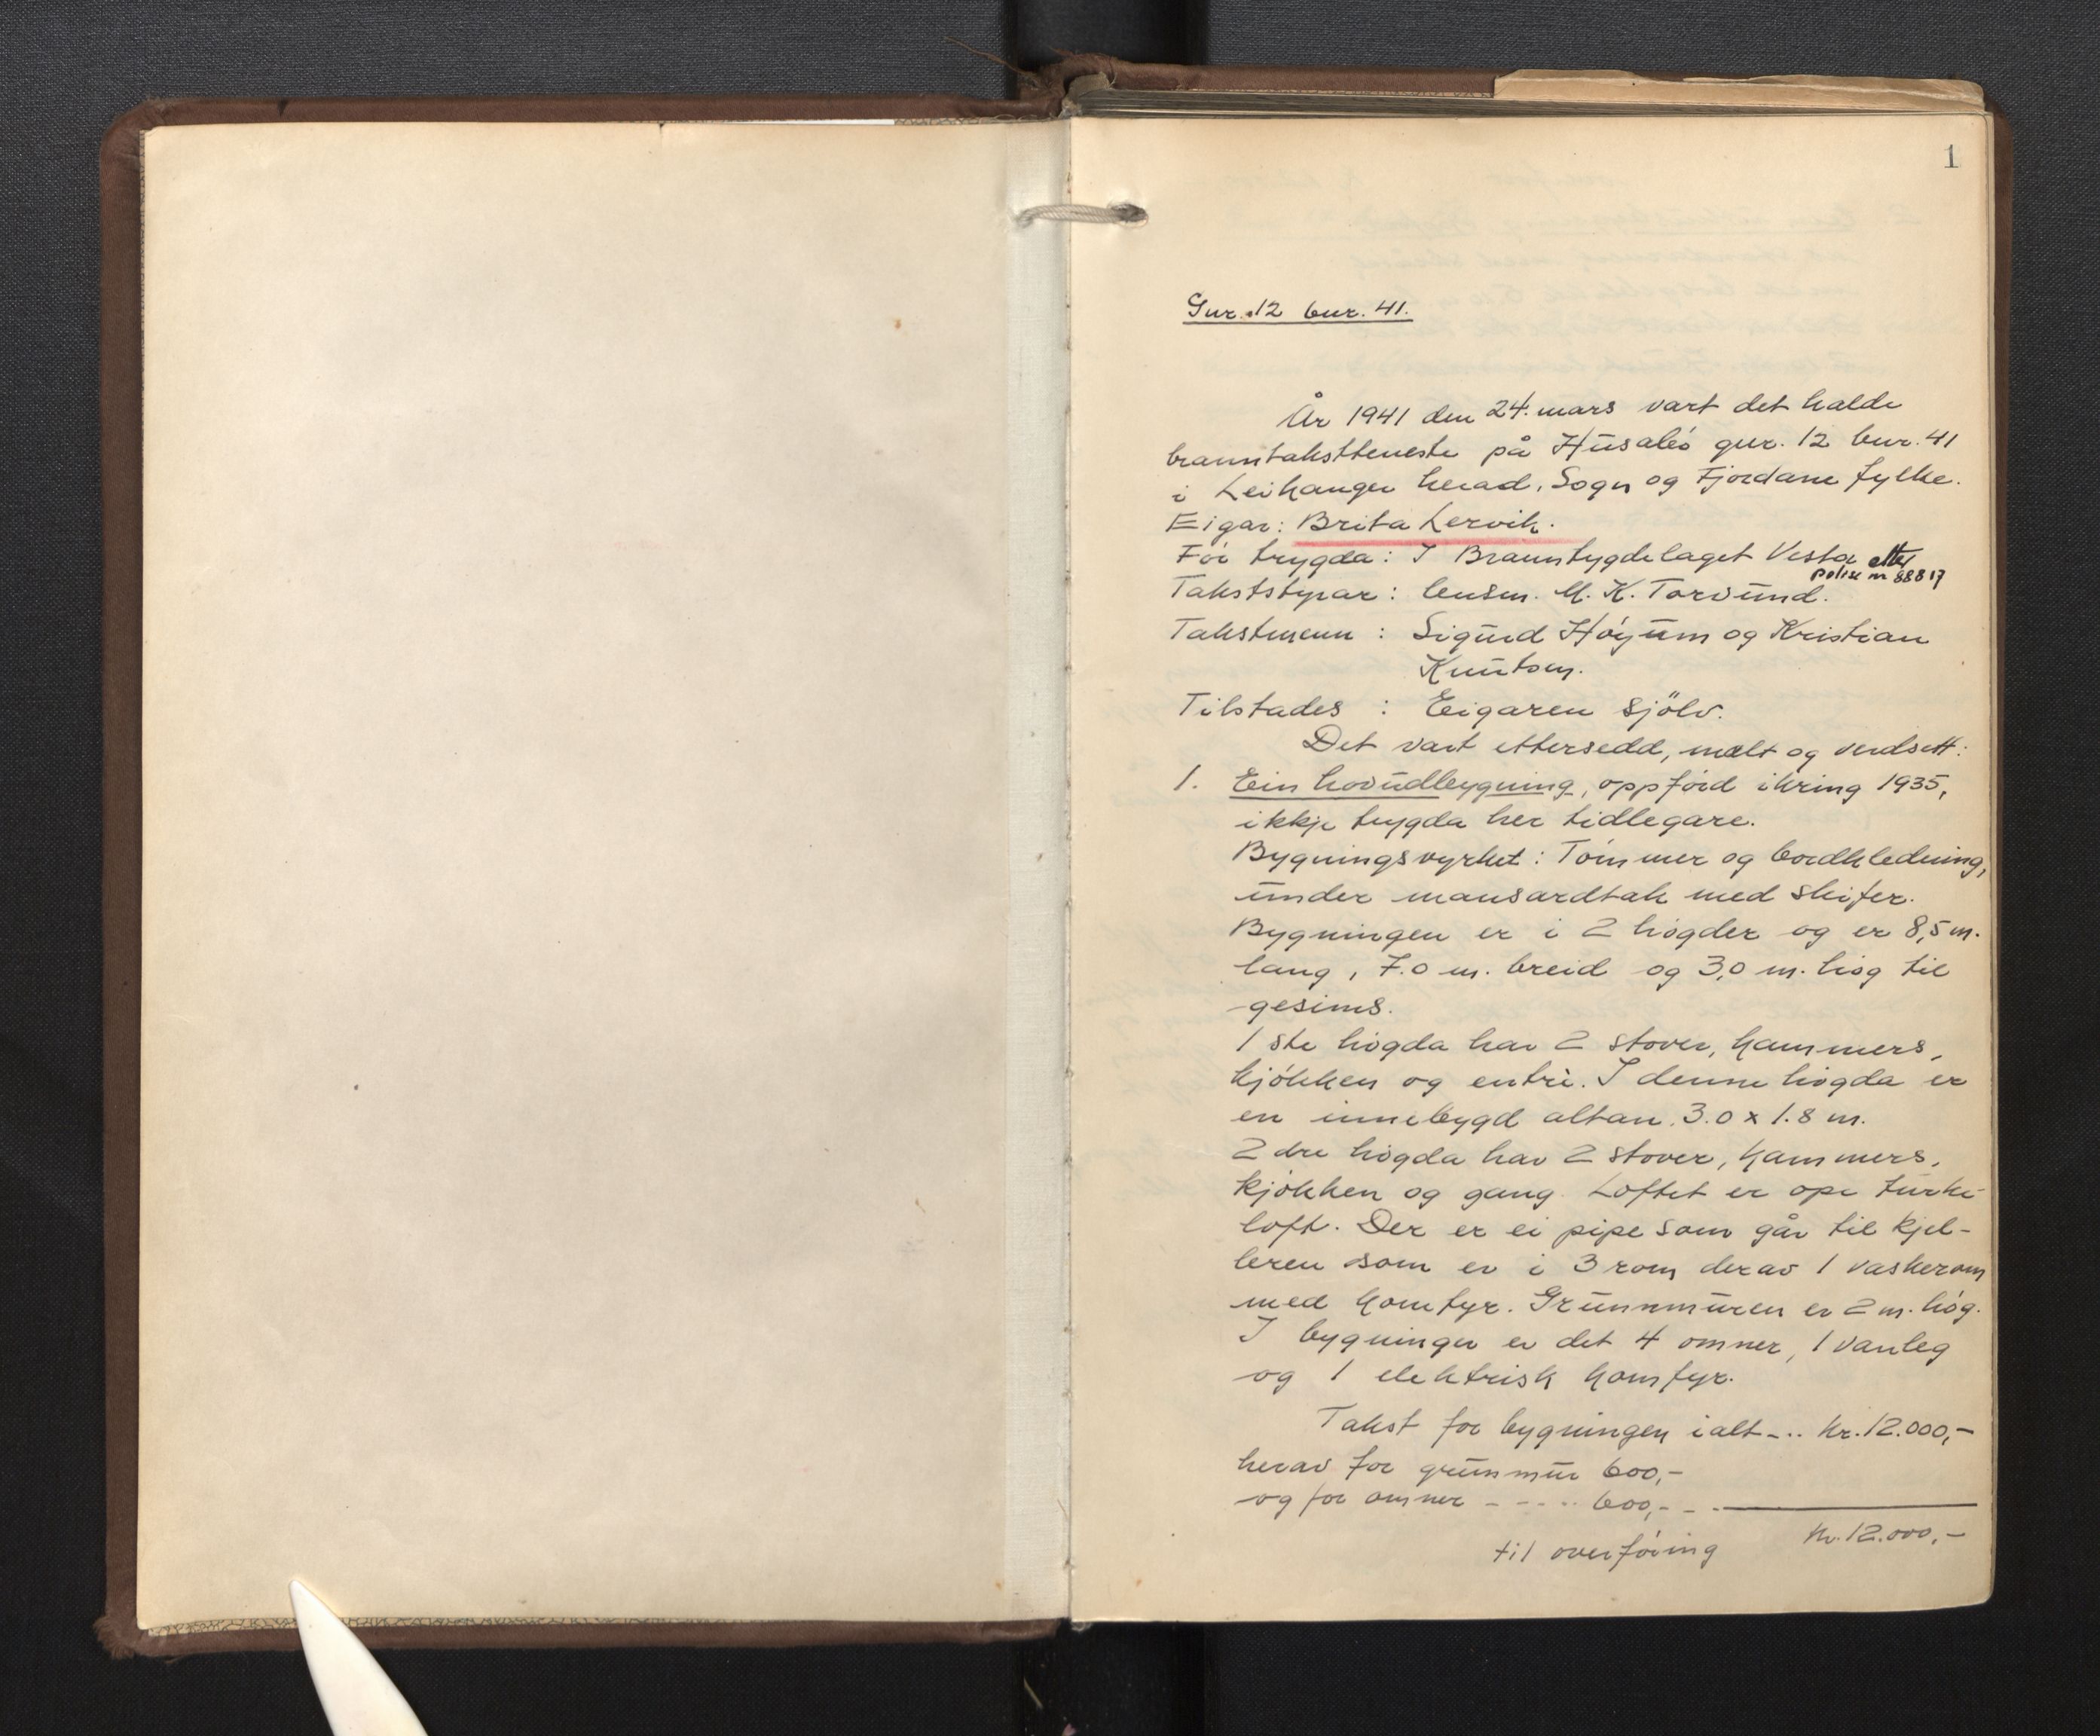 1
Gnr. 12 bnr. 41.
År 1941 den 24. mars vart det halde
branntakstteneste på Husabø gnr. 12 bnr. 41
i Leikanger herad, Sogn og Fjordane fylke.
Eigar: Brita Lervik.
Før trygda: I Branntygdelaget Vesta etter
polise nr 88817
Takststyrar: lensm. M. K. Torvund.
Takstmenn: Sigurd Høyum og Kristian
Knutsen.
Tilstades: Eigaren sjölv.
Det vart ettersedd, mælt og verdsett:
1. Ein hovudbygning, oppförd ikring 1935,
ikkje trygda her tidlegare.
Bygningsvyrket: Tömmer og bordkledning,
under mansardtak med skifer.
Bygningen er i 2 högder og er 8,5 m.
lang, 7.0 m. breid og 3,0 m. hög til
gesims.
1 ste högda har 2 stover, kammers,
kjökken og entrè. I denne högda er
en innebygd altan. 3.0 x 1.8 m.
2 dre högda har 2 stover, kammers,
kjökken og gang. Loftet er ope turke-
loft. Der er ei pipe som går til kjel-
leren som er i 3 rom derav 1 vaskerom
med komfyr. Grunnmuren er 2 m. hög.
I bygningen er det 4 omner, 1 vanleg
og 1 elektrisk komfyr.
Takst for bygningen ialt -.. kr. 12.000,-
herav for grunmur 600,-
og for omner - - - .. 600,- - .
til overföring kr. 12.000,-